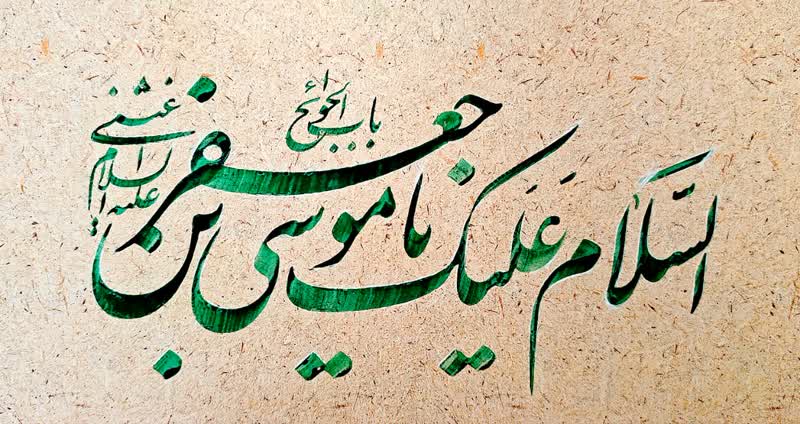 السَّلام عَلَیک یا موسی بن جعفر
باب الحوائج
علیه السلام